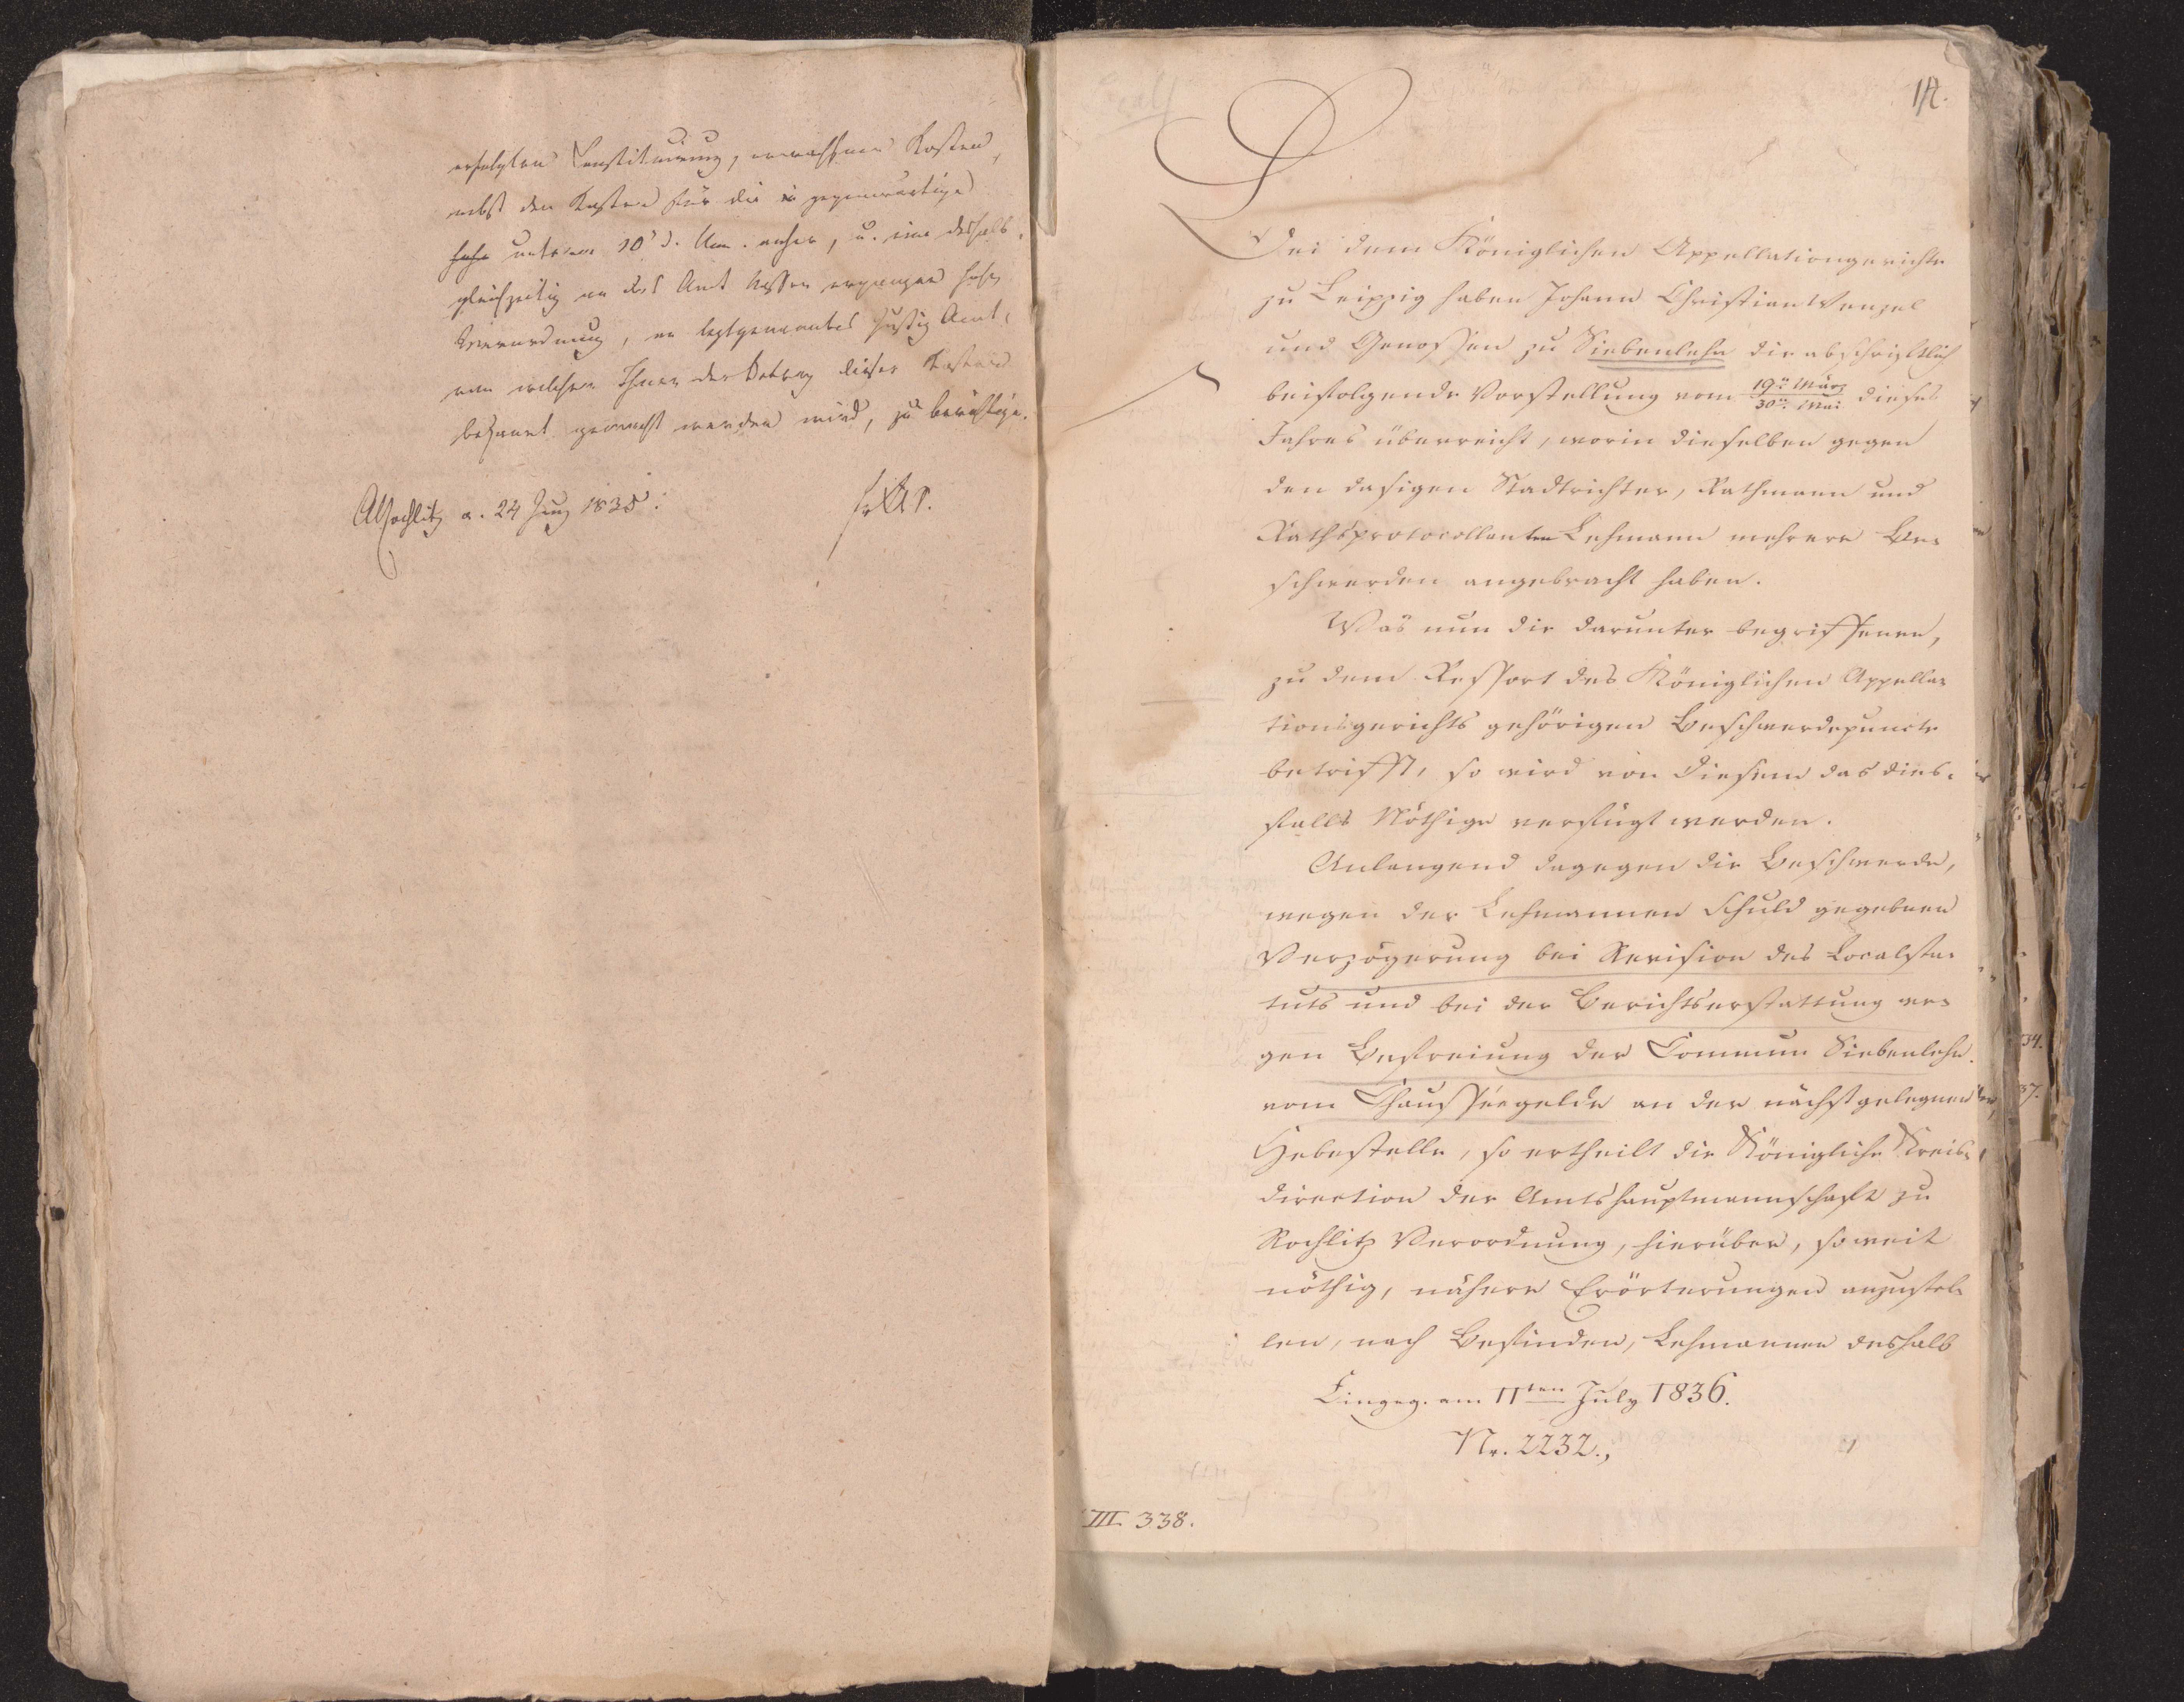 erfolgten Constituirung, erwachsenen Kosten,
nebst den Kosten für die gegenwärtige
unterm 10 d. Mon. anher, u. eine deshalb
gleichzeitig an das Amt Nossen ergangene hohe
Verordnung, an letztgenanntes Justiz Amt,
von welchem Ihnen der Betrag dieser Kosten
bekannt gemacht werden wird, zu berichtigen.
AHRochlitz a. 24 Juny 1835.
18.
Bei dem Königlichen Appellationgerichte
zu Leipzig haben Johann Christian Wenzel
und Genossen zu Siebenlehn die abschriftlich
beifolgende Vorstellung vom 19n März / 30n Mai dieses
Jahres überreicht, worin dieselben gegen
den dasigen Stadtrichter, Rathmann und
Rathsprotocollanten Lehmann mehrere Be-
schwerden angebracht haben.
Was nun die darunter begriffenen,
zu dem Ressort des Königlichen Appella-
tionsgerichts gehörigen Beschwerdepuncte
betrifft, so wird von diesem das dies-
falls Nöthige verfügt werden.
Anlangend dagegen die Beschwerde,
wegen der Lehmannen Schuld gegebenen
Verzögerung bei Revision des Localsta-
tuts und bei der Berichtserstattung we-
gen Befreiung der Commun Siebenlehn
vom Chausséegelde an der nächstgelegenen
Hebestelle, so ertheilt die Königliche Kreis-
direction der Amtshauptmannschaft zu
Rochlitz Verordnung, hierüber, soweit
nöthig, nähere Erörterungen anzustel-
len, nach Befinden, Lehmannen deshalb
Eingeg. am 11ten July 1836.
Nr. 2232.,
III 338.
34.
37.